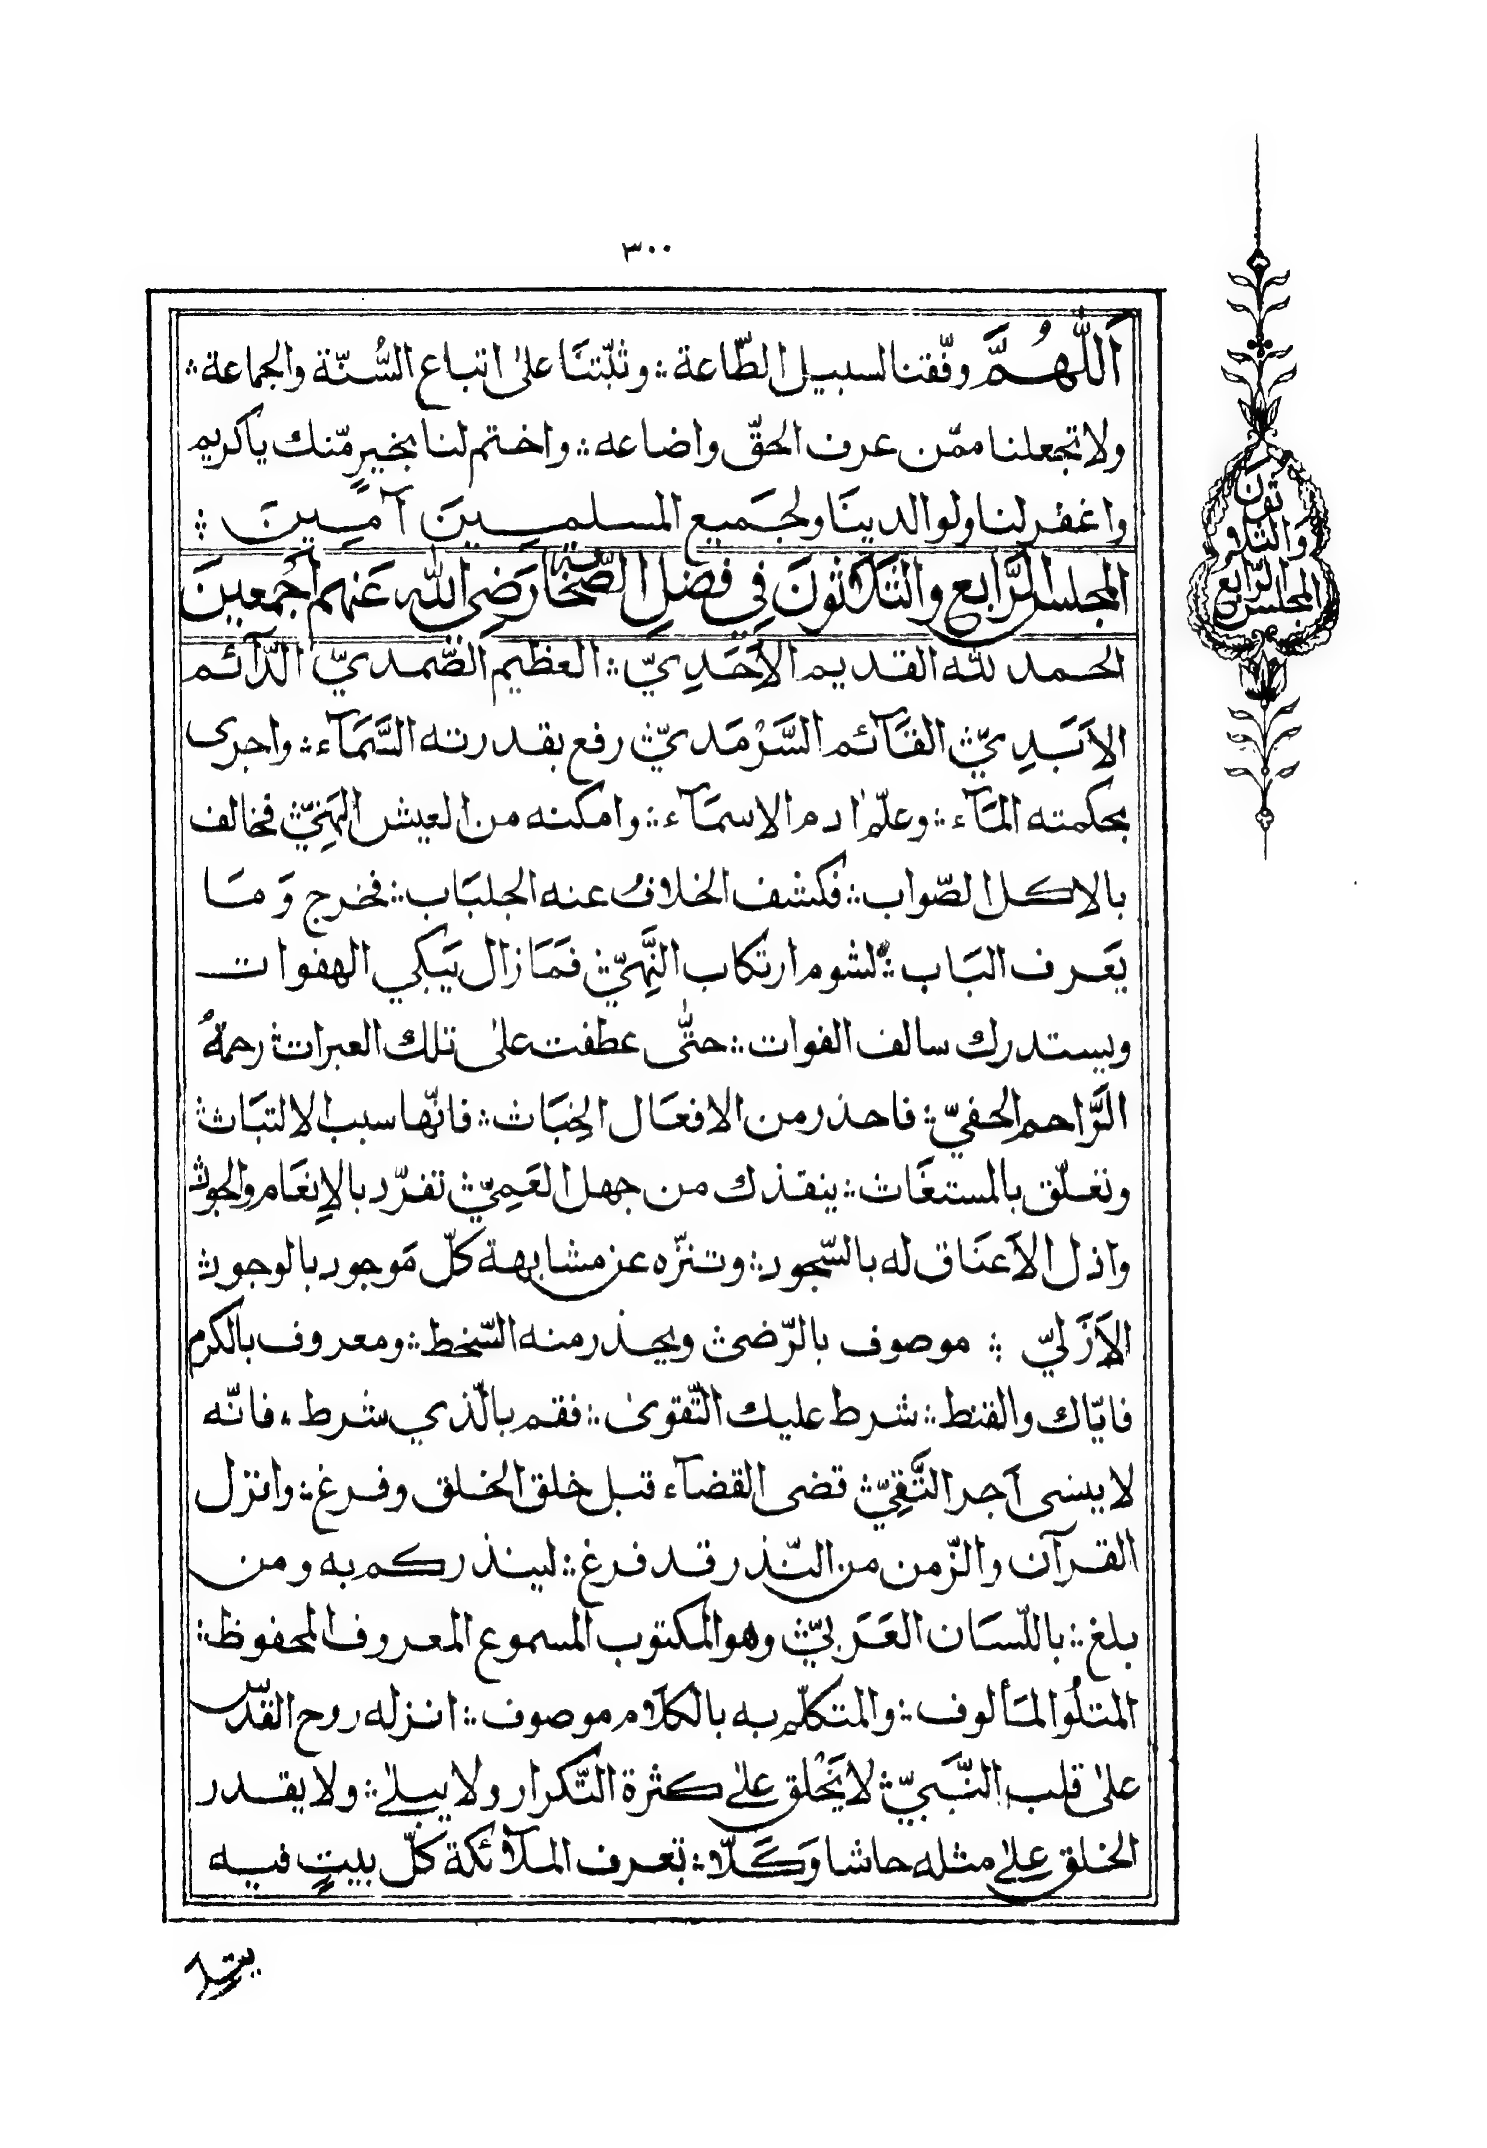 ٣٠٠
اَللّٰهُمَّ وفّقنا لسبيل الطّاعة ؞ وثبّتنَا علىٰ اتباع السُّنّة والجماعة ؞
ولا تجعلنا ممّن عرف الحقّ واضاعه ؞ واختم لنا بخيرٍ مّنك ياكريم
واغفر لنا ولوالدينَا ولجَميع المسلمِينَ آمِينَ ؞
المجلس الرَّابع والثَلاثونَ فِي فضلِ الصَّحَابَةِ رَضِي اللّٰه عَنهم اَجمعينَ
والثلاثون
المجلس الرّابع
الحمد للّٰه القديم الاَحَدِيّ ؞ العظيم الصّمديّ الدَّآئم
الاَبَدِيّ ؞ القَآئم السَّرْمَديّ ؞ رفع بقدرته السَّمَآء ؞ واجرى
بحكمته المَآء ؞ وعلّم اٰدم الاسمَآء ؞ وامكنه من العيش الهَنِيّ ؞ فخالف
بالاكل الصّواب ؞ فكشف الخلافُ عنه الجلبَاب ؞ فخرج وَمَا
يَعَرف البَاب ؞ لشوم ارتكاب النَّهِيّ ؞ فمَا زال يَبكي الهفوات
ويستدرك سالف الفوات ؞ حتّٰى عطفت علىٰ تلك العبرات ؞ رحمةُ
الرَّاحم الحفيّ ؞ فاحذر من الافعَال الخِبَاث ؞ فانّها سبب الالتبَاث ؞
وتعلّق بالمستغَاث ؞ ينقذك من جهل العَمِيّ ؞ تفرّد بالاِنعَام والجود ؞
واذل الاَعنَاق له بالسّجود ؞ وتنزّه عن مشابهة كلّ مَوجود بالوجود ؞
الاَزَليّ ؞ موصوف بالرّضى ؞ ويحذر منه السّخط ؞ ومعروف بالكرم
فايّاك والقنط ؞ شرط عليك التّقوىٰ ؞ فقم بالّذي شرط ؞ فانّه
لا ينسى اَجر التَّقِيّ ؞ قضى القضآء قبل خلق الخلق وفرغ ؞ وانزل
القرآن والزّمن من النّذر قد فرغ ؞ لينذركم به ومن
بلغ ؞ باللّسَان العَرَبيّ ؞ وهو المكتوب المسموع المعروف المحفوظ ؞
المتلُوّ المَألوف ؞ والمتكلّم به بالكلَام موصوف ؞ انزله روح القدّس
علىٰ قلب النَّبَيّ ؞ لا يَخْلق علىٰ كثرة التّكرار ولا يبلىٰ ؞ ولا يقدر
الخلق علىٰ مثله حاشا وَكَلّا ؞ تعرف الملآئكة كلّ بيتٍ فيه
يتلى